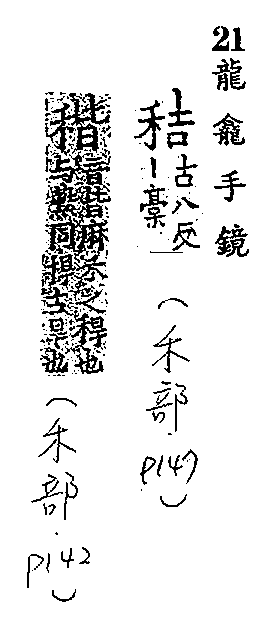 21 龍龕手鏡
秸 古八反
丨稾
(禾部.p147)
稭 音皆麻禾之稈也
与藁同稈古旱也
(禾部.p142)